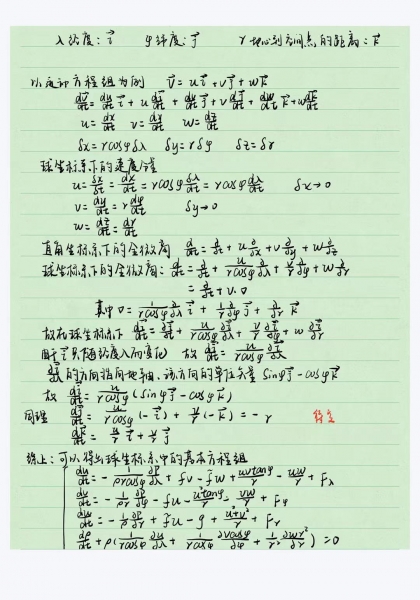 λ经度：i⃗  φ纬度：j⃗  r 地心到空间点的距离：k⃗
以运动方程组为例 V⃗ = u i⃗ + v j⃗ + w k⃗
dV⃗/dt = du/dt i⃗ + u di⃗/dt + dv/dt j⃗ + v dj⃗/dt + dw/dt k⃗ + w dk⃗/dt
u = dx/dt  v = dy/dt  w = dz/dt
δx = r cosφ δλ  δy = r δφ  δz = δr
球坐标系下的速度分量
u = δx/δt = dx/dt = r cosφ δλ/δt = r cosφ dλ/dt  δx→0
v = dy/dt = r dφ/dt  δy→0
w = dz/dt = dr/dt
直角坐标系下的全微商 d/dt = ∂/∂t + u ∂/∂x + v ∂/∂y + w ∂/∂z
球坐标系下的全微商：d/dt = ∂/∂t + u/(r cosφ) ∂/∂λ + v/r ∂/∂φ + w ∂/∂r
= ∂/∂t + v·∇
其中 ∇ = 1/(r cosφ) ∂/∂λ i⃗ + 1/r ∂/∂φ j⃗ + ∂/∂r k⃗
故在球坐标系下 di⃗/dt = ∂i⃗/∂t + u/(r cosφ) ∂i⃗/∂λ + v/r ∂i⃗/∂φ + w ∂i⃗/∂r
由于 i⃗ 只随经度λ而变化 故 di⃗/dt = u/(r cosφ) ∂i⃗/∂λ
∂i⃗/∂λ 的方向指向地轴，该方向的单位分量 sinφ j⃗ - cosφ k⃗
故 di⃗/dt = u/(r cosφ) (sinφ j⃗ - cosφ k⃗)
同理 dj⃗/dt = u/(r cosφ) (-i⃗) + v/r (-k⃗) = -r
dk⃗/dt = u/r i⃗ + v/r j⃗
综上：可以得出球坐标系中的基本方程组
du/dt = - 1/(ρ r cosφ) ∂p/∂λ + fv - f̃w + uv tanφ/r - uw/r + Fλ
dv/dt = - 1/ρ ∂p/r∂φ - fu - u² tanφ/r - vw/r + Fφ
dw/dt = - 1/ρ ∂p/∂r + f̃u - g + (u²+v²)/r + Fr
dρ/dt + ρ( 1/(r cosφ) ∂u/∂λ + 1/(r cosφ) ∂v cosφ/∂φ + 1/r² ∂wr²/∂r ) = 0